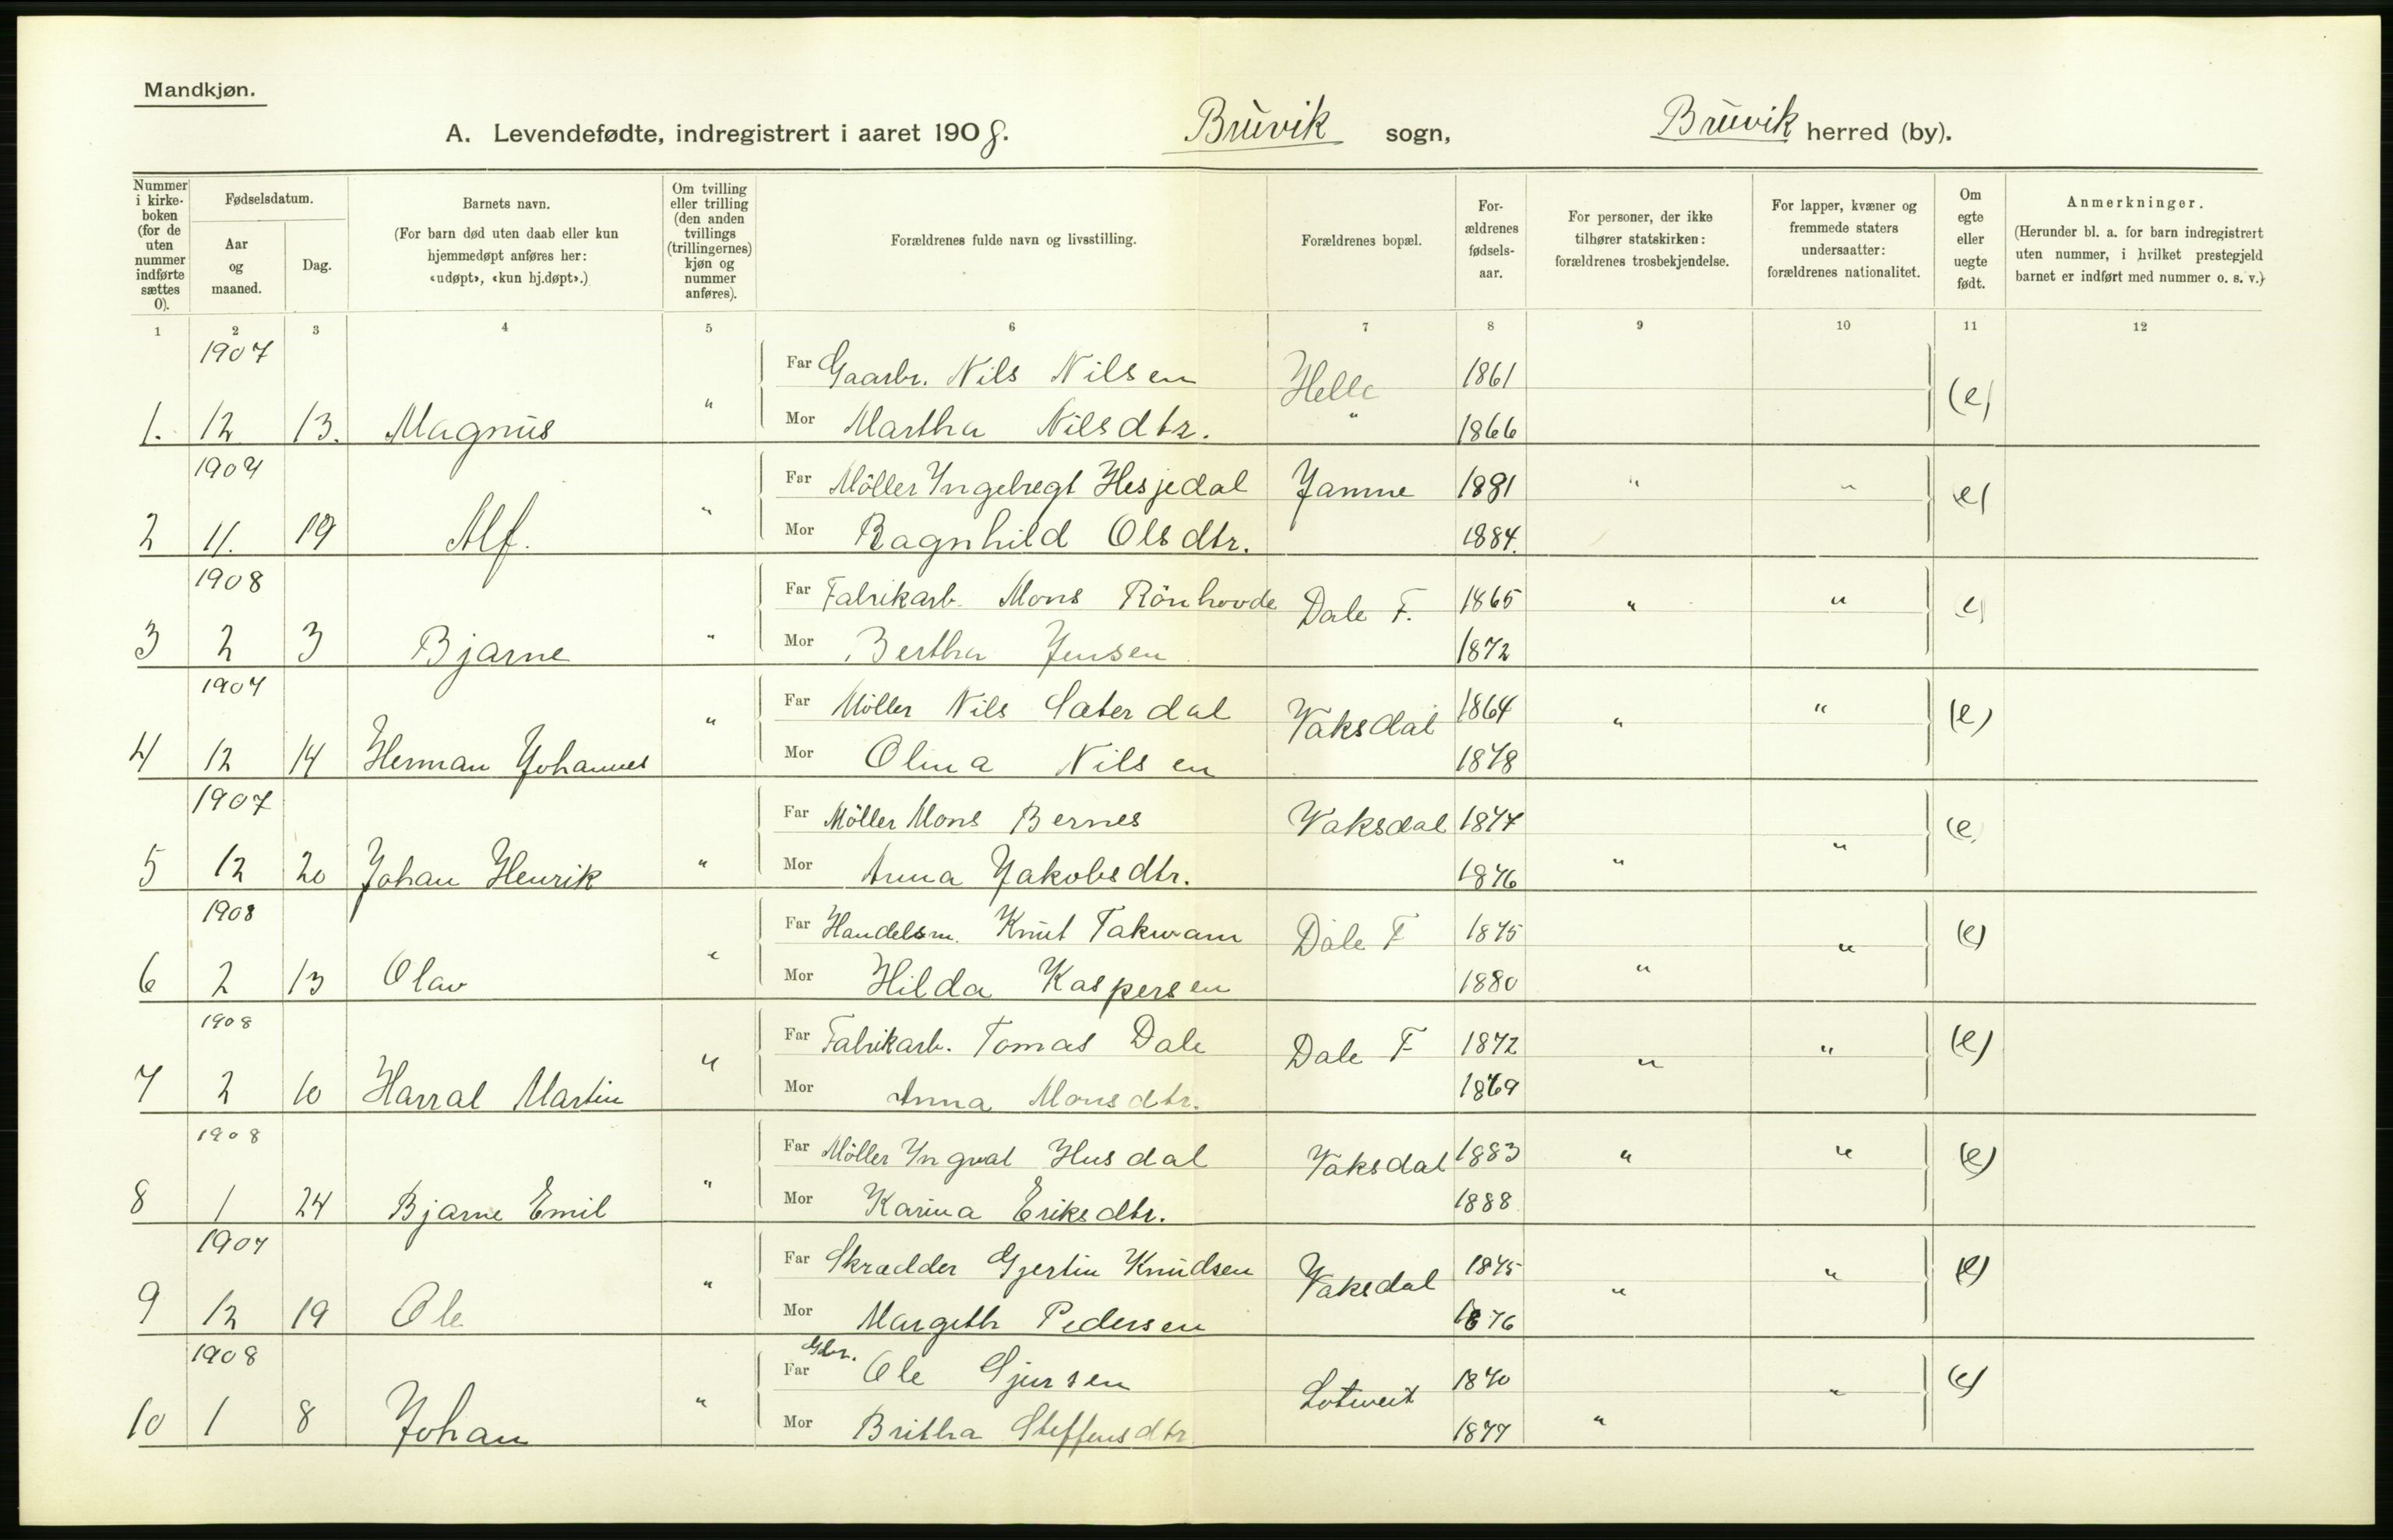 Mandkjøn.
A. Levendefødte, indregistrert i aaret 1908. Bruvik sogn, Bruvik herred (by).
Nummer i kirke- boken (for de uten nummer indførte sættes 0).
Fødselsdatum.
Aar og maaned.
Dag.
Barnets navn.
(For barn død uten daab eller kun hjemmedøpt anføres her: «udøpt», «kun hj.døpt».)
Om tvilling eller trilling (den anden tvillings (trillingernes) kjøn og nummer anføres).
Forældrenes fulde navn og livsstilling.
Forældrenes bopæl.
For- ældrenes fødsels- aar.
For personer, der ikke tilhører statskirken: forældrenes trosbekjendelse.
For lapper, kvæner og fremmede staters undersaatter: forældrenes nationalitet.
Om egte eller uegte født.
Anmerkninger.
(Herunder bl. a. for barn indregistrert uten nummer, i hvilket prestegjeld barnet er indført med nummer o. s. v.)
1 2 3 4 5 6 7 8 9 10 11 12
1907 Far Gaarbr. Nils Nilsen Helle 1861 (e)
1. 12 13. Magnus " Mor Martha Nilsdtr. " 1866
1907 Far Möller Yngebregt Hesjedal Jamne 1881 " " e)
2 11. 19 Alf. " Mor Ragnhild Olsdtr. 1884.
1908 Far Fabrikarb. Mons Rönhovde Dale F. 1865 " " e)
3 2 3 Bjarne " Mor Bertha Jensen 1872
1907 Far Möller Nils Sæterdal Vaksdal 1864 " " (e)
4 12 14 Herman Johannes " Mor Olina Nilsen 1878
1907 Far Möller Mons Bernes Vaksdal 1877 (e
5 12 20 Johan Henrik " Mor Anna Jakobsdtr. 1876 " "
1908 Far Handelsm. Knut Takvam Dale F 1875 " (e)
6 2 13 Olav " Mor Hilda Kaspersen 1880 "
1908 Far Fabrikarb. Tomas Dale Dale F 1872 " " (e)
7 2 10 Harral Martin " Mor Anna Monsdtr. 1869
1908 Far Möller Yngval Husdal Vaksdal 1883 " " (e)
8 1 24 Bjarne Emil " Mor Karina Eriksdtr. 1888
1907 Far Skrædder Gjertin Knudsen Vaksdal 1875 " " (e)
9 12 19 Ole " Mor Margith Pedersen 1876
1908 Far Gbr. Ole Sjursen Lotweit 1870 " (e)
10 1 8 Johan " Mor Britha Steffensdtr 1877 "